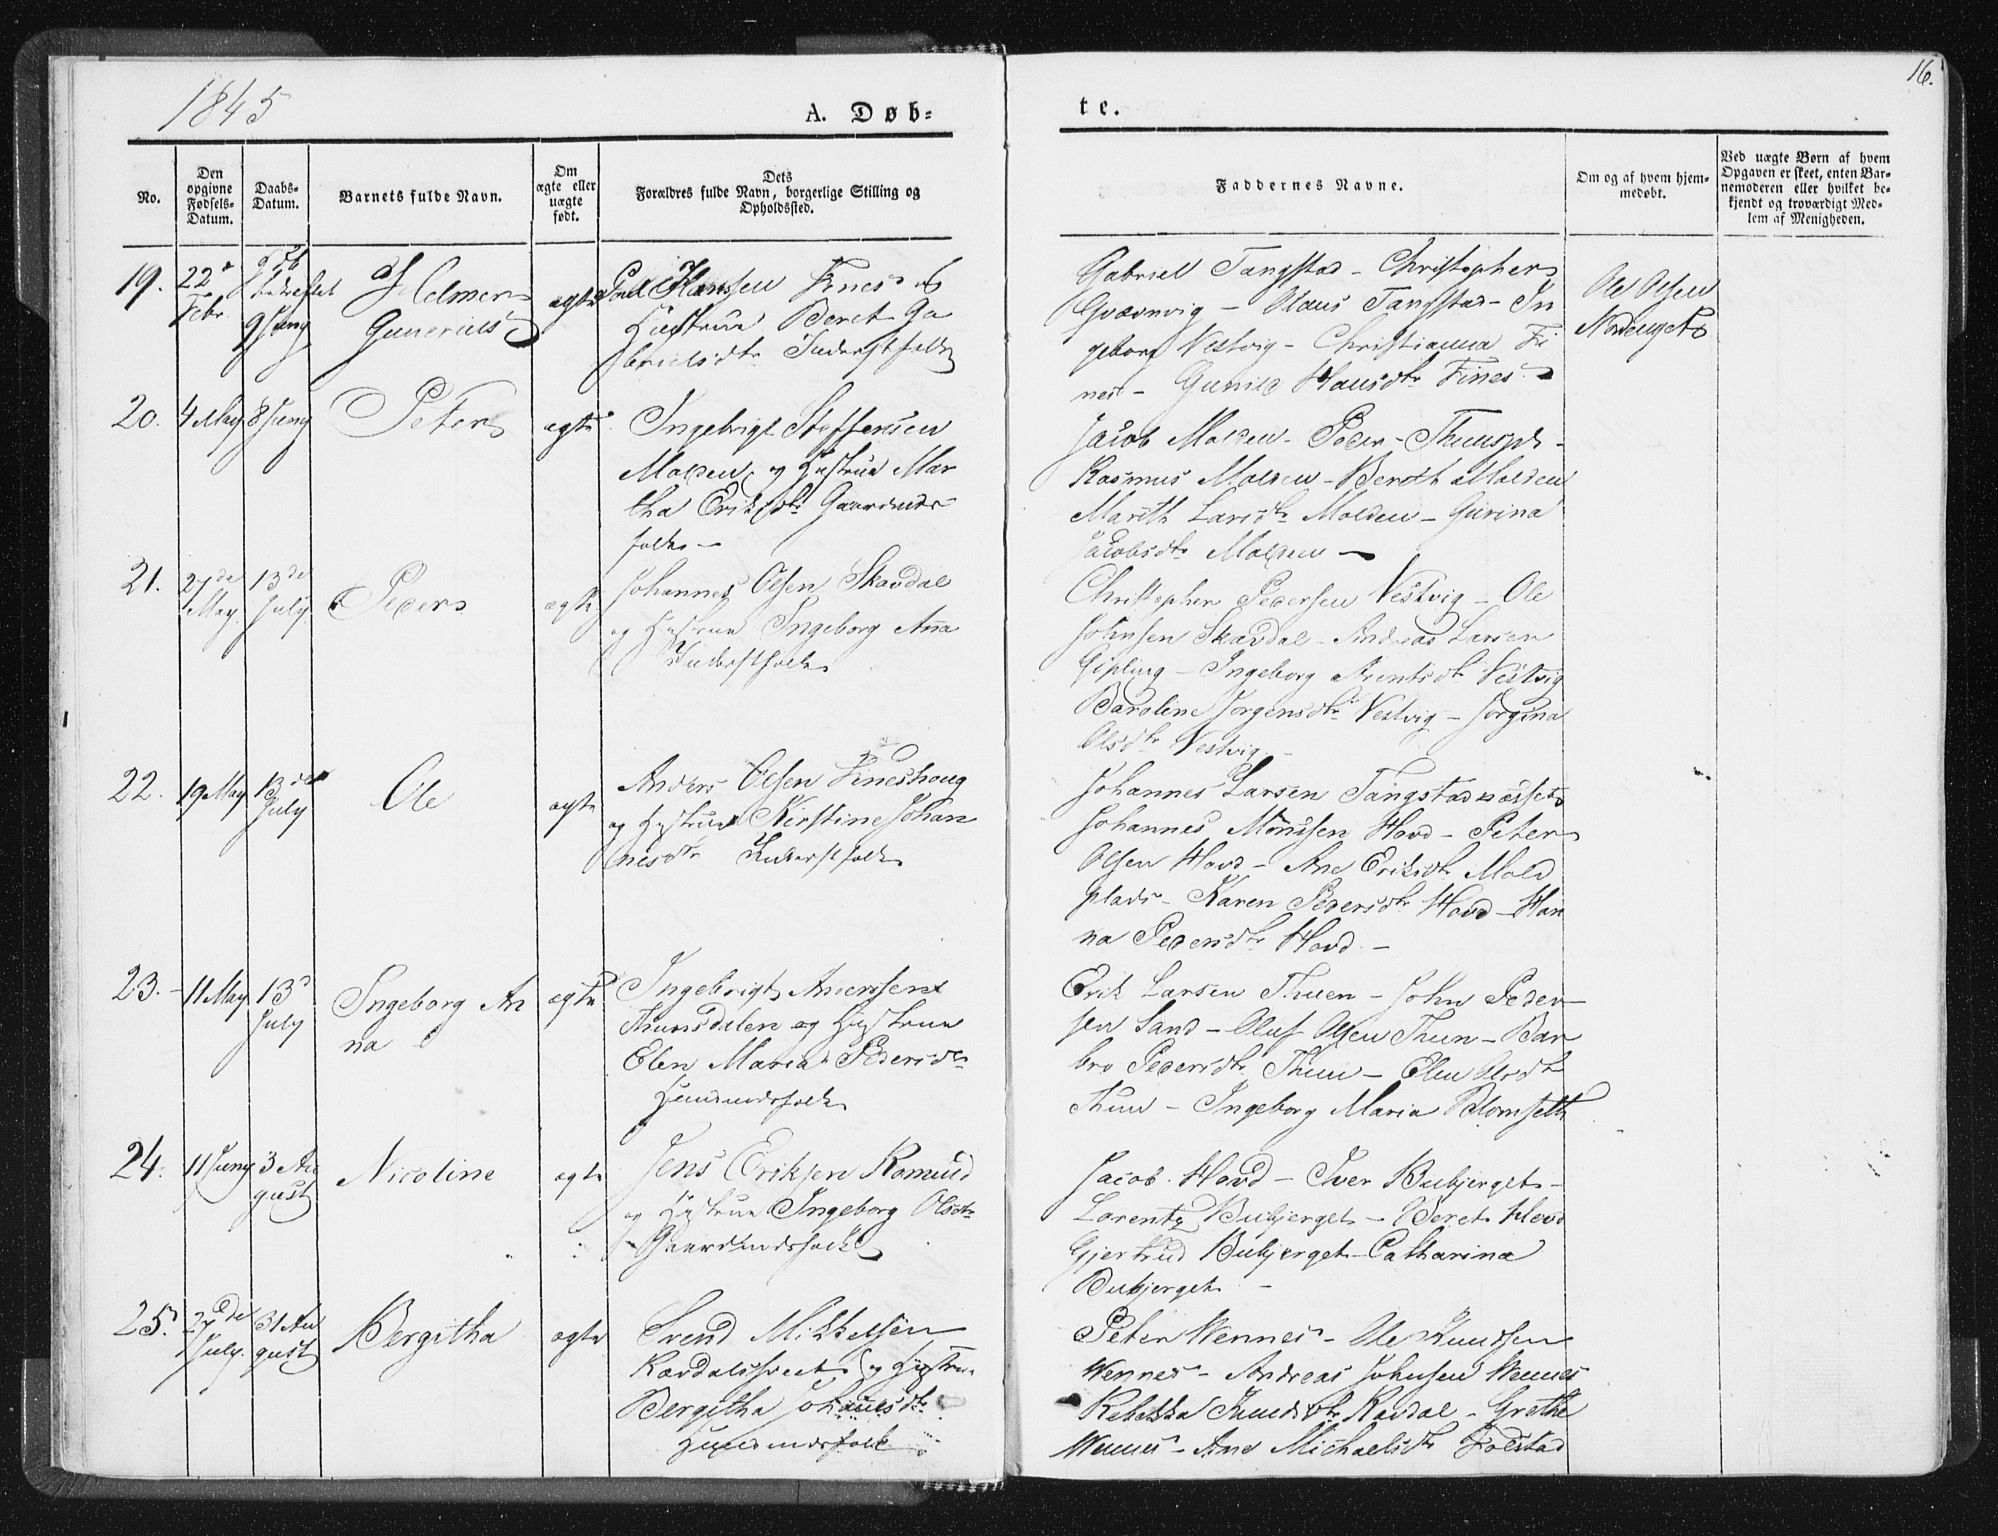 1845
A. Døb-
te.
16.
No.
Den
opgivne
Fødsels-
Datum.
Daabs-
Datum.
Barnets fulde Navn.
Om
ægte eller
uægte
født.
Dets
Forældres fulde Navn, borgerlige Stilling og
Opholdssted.
Faddernes Navne.
Om og af hvem hjem-
medøbt.
Ved uægte Børn af hvem
Opgaven er skeet, enten Bar-
nemoderen eller hvilket be-
kjendt og troværdigt Med-
lem af Menigheden.
19.
22
Febr
Helmer
Gunerius
ægte
Hansen Fines og
Hustrue Beret Ga
brielsdtr Inderstfolk
Gabriel Tangstad - Christopher
- Olaus Tangstad - In
geborg Vestvig - Christianna Fi
nes - Gunild Hansdtr Fines
Ole Olsen
20.
4 May
8 Juny
Peter
ægte
Ingebrigt Steffensen
Molden og Hustrue Mar
tha Eriksdtr Gaardmands
folk
Jacob Molden - Peder
Rasmus Molden - Bereth Molden
Marith Larsdtr Molden - Gurina
Jacobsdtr Molden
21.
27de
May
13de
July
Peder
ægte
Johannes Olsen Skavdal
og Hustrue Ingeborg Ana
Inderstfolk
Christopher Pedersen Vestvig - Ole
Johnsen Skavdal - Andreas Larsen
Gipling - Ingeborg Arentsdtr Vestvig
Baroline Jørgensdtr Vestvig - Jørgina
Olsdtr Vestvig -
22.
19 May
13de
July
Ole
ægte
Anders Olsen Fineshoug
og Hustrue Kirstine Johan
nesdtr Inderstfolk
Johannes Larsen
Johannes Monssen Hovd - Peter
Olsen Hovd - Ane Eriksdtr Mold
plads - Karen Pedersdtr Hovd - Han
na Pedersdtr Hovd. -
23. -
11 May
13
July
Ingeborg An
na
ægte
Ingebrigt Andersen
Thunsdalen og Hustrue
Elen Maria Pedersdtr
Huusmandsfolk
Erik Larsen Thuen - John Peder-
sen Sand - Oluf Olsen Thun - Bar
bro Pedersdtr Thun - Elen Olsdtr
Thun - Ingeborg Maria Blomseth
24.
11 Juny
3 Au
gust
Nicoline
ægte
Jens Eriksen Romund
og Hustrue Ingeborg Olsdtr
Gaardmandsfolk
Jacob Hovd - Iver Bubjerget -
Lorentz Bubjerget - Beret Hovd
Gjertrud Bubjerget - Catharina
Bubjerget -
25.
27de
July
31 Au
gust
Bergitha
ægte
Svend Mikkelsen
og Hustrue
Bergitha Johanesdtr
Huusmandsfolk
Peter Wennes - Ole Knudsen
Wennes - Andreas Johnsen Wennes
Rebekka Knudsdtr Ravdal - Grethe
Wennes - Ane Michaelsdtr Folstad